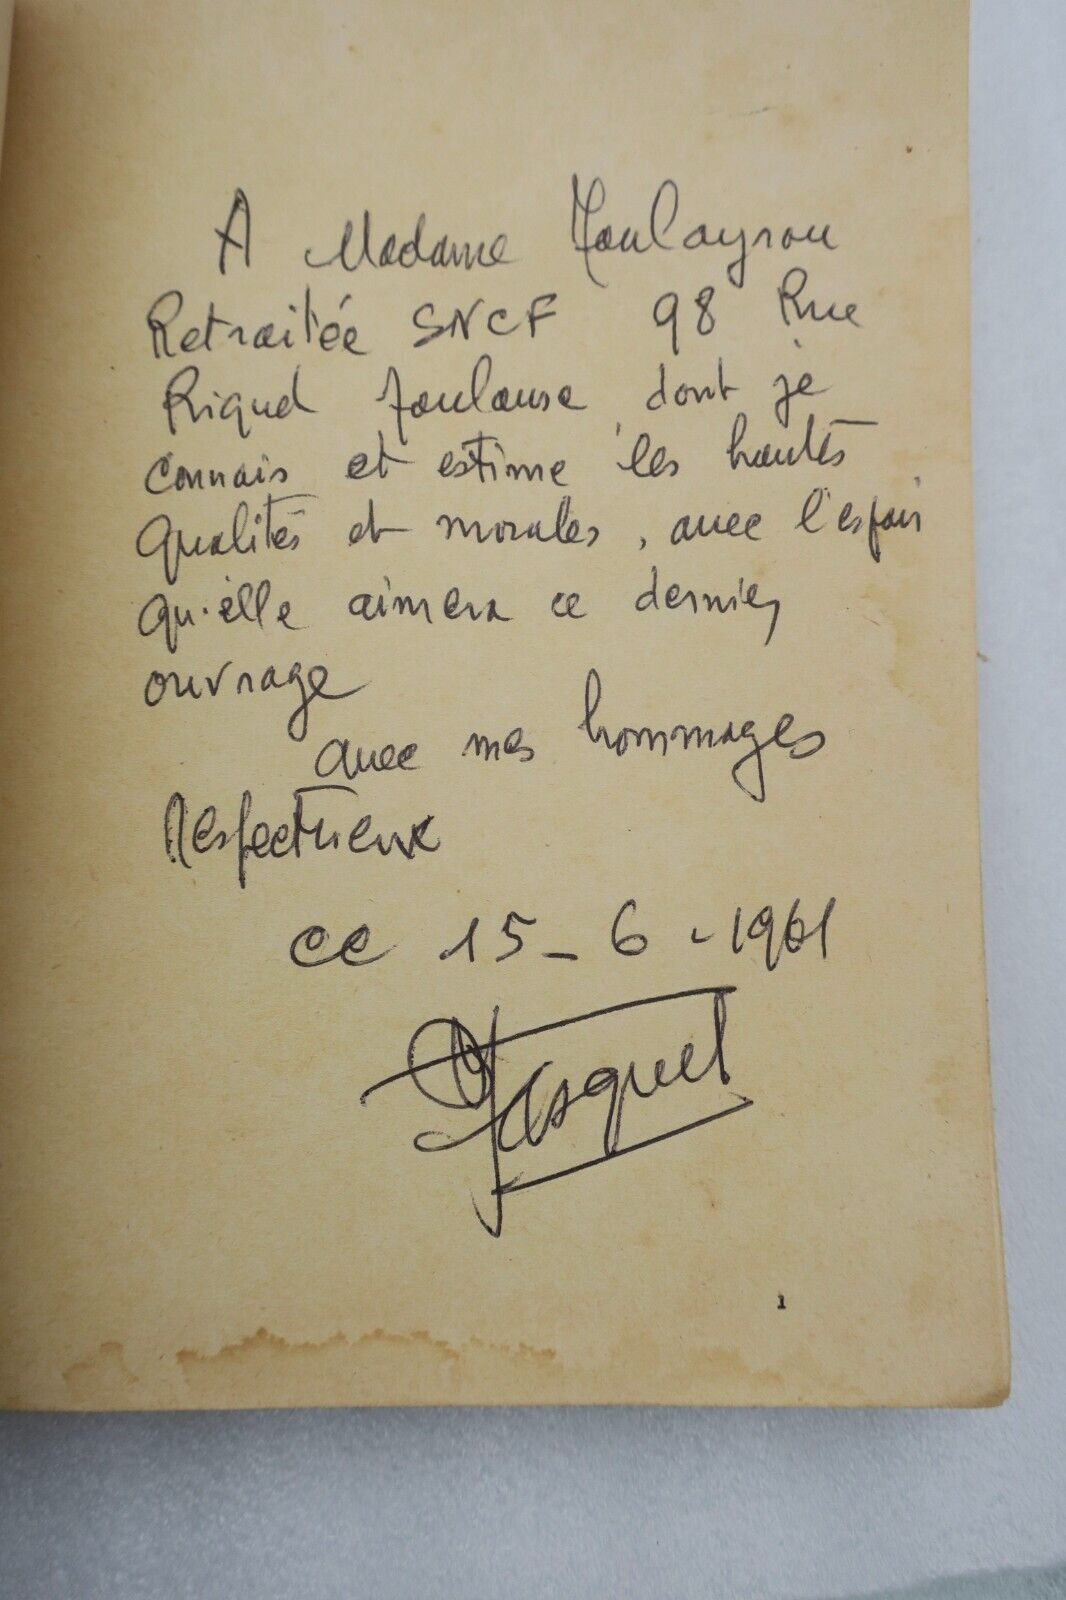 A Madame Toulayrou
Retraitée SNCF 98 Rue
Riquet Toulouse dont je
connais et estime les hautes
Qualités et morales, avec l'espoir
qu'elle aimera ce dernier
ouvrage
avec mes hommages
Respectueux
ce 15-6-1961
Jasquet
1